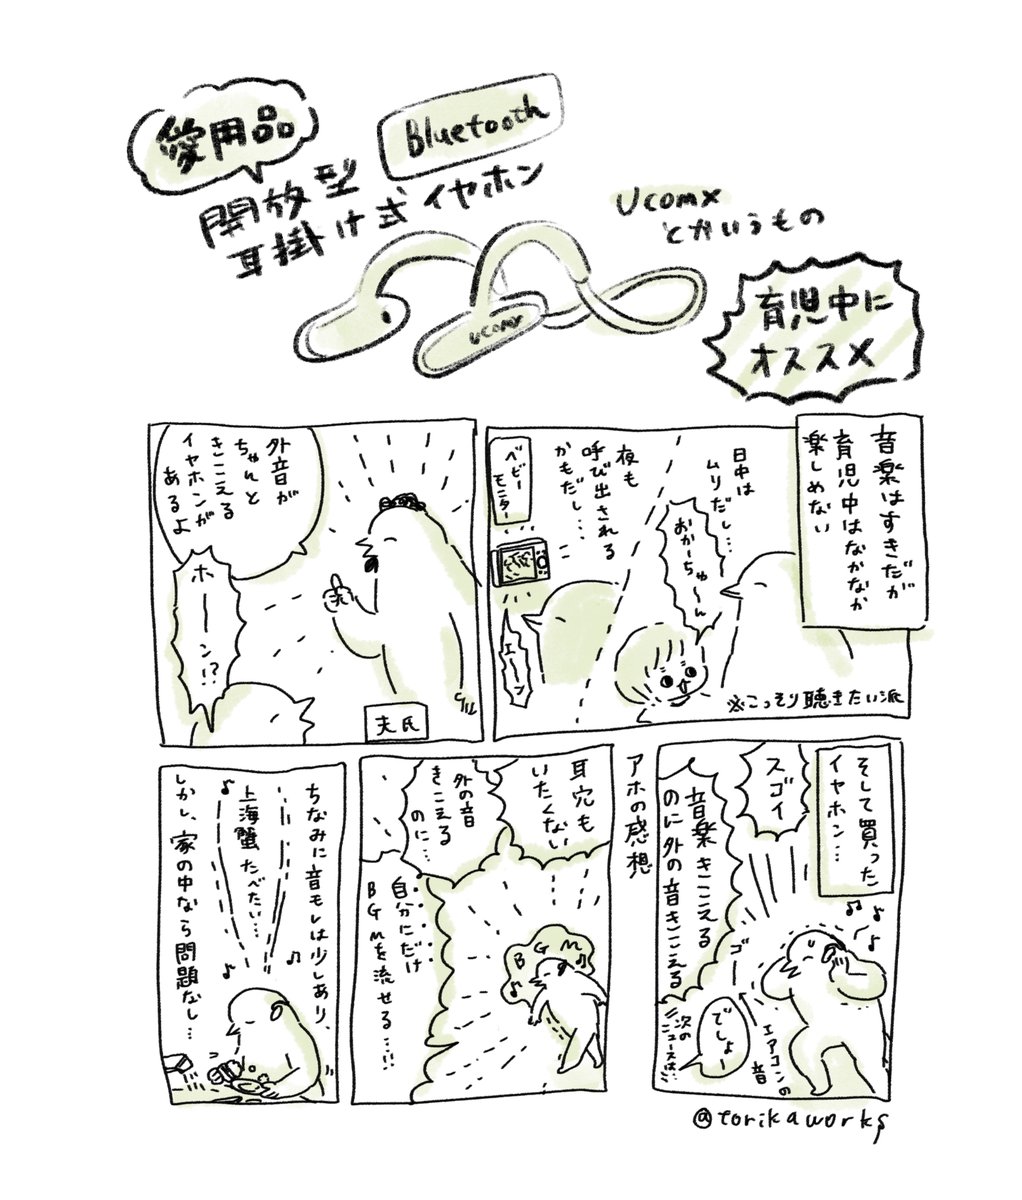 愛用品
Bluetooth
開放型
耳掛け式イヤホン
Ucomx
とかいうもの
ucomx
育児中に
オススメ
音楽はすきだが
育児中はなかなか
楽しめない
日中は
ムリだし…
おかーちゅ〜ん
夜も
呼び出される
かもだし…
ベビー
モニター
エーン
※こっそり聴きたい派
外音が
ちゃんと
きこえる
イヤホンが
あるよ
ホーーン!?
夫氏
そして買った
イヤホン…
スゴイ
音楽きこえる
のに外の音きこえる
ゴー
エアコンの
音
でしょ
次の
ニュースは…
アホの感想
耳穴も
いたくない
外の音
きこえる
のに…
自分にだけ
BGMを流せる…!!
BGM
ちなみに音モレは少しあり、
上海蟹たべたい…
しかし、家の中なら問題なし…
@torikaworks